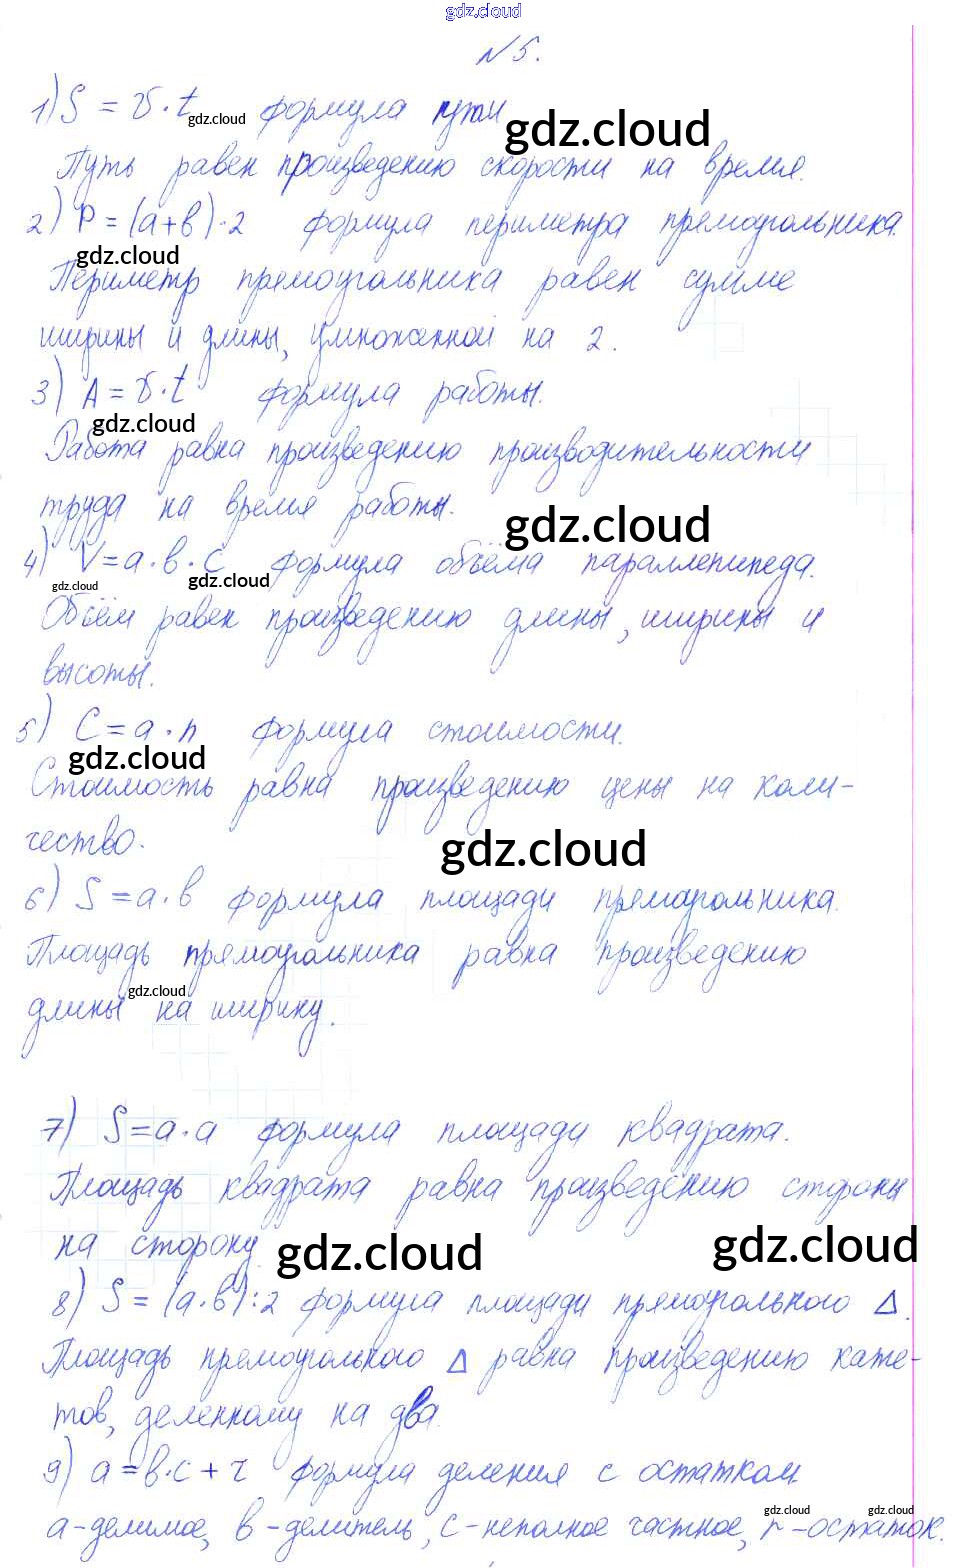 gdz.cloud
№5.
1) S = v·t gdz.cloud формула пути gdz.cloud
Путь равен произведению скорости на время.
2) P = (a+b)·2 формула периметра прямоугольника.
gdz.cloud
Периметр прямоугольника равен сумме
ширины и длины, умноженной на 2.
3) A = v·t формула работы.
gdz.cloud
Работа равна произведению производительности
труда на время работы.
gdz.cloud
4) V=a·b·c формула объёма параллепипеда.
gdz.cloud gdz.cloud
Объём равен произведению длины, ширины и
высоты.
5) C=a·n формула стоимости.
gdz.cloud
Стоимость равна произведению цены на коли-
чество.
gdz.cloud
6) S=a·b формула площади прямоугольника.
Площадь прямоугольника равна произведению
gdz.cloud
длины на ширину.
7) S=a·a формула площади квадрата.
Площадь квадрата равна произведению стороны
на сторону gdz.cloud gdz.cloud
8) S = (a·b):2 формула площади прямоугольного Δ.
Площадь прямоугольного Δ равна произведению кате-
тов, деленному на два.
9) a=b·c+r формула деления с остатком
gdz.cloud gdz.cloud
a-делимое, b-делитель, c-неполное частное, r-остаток.